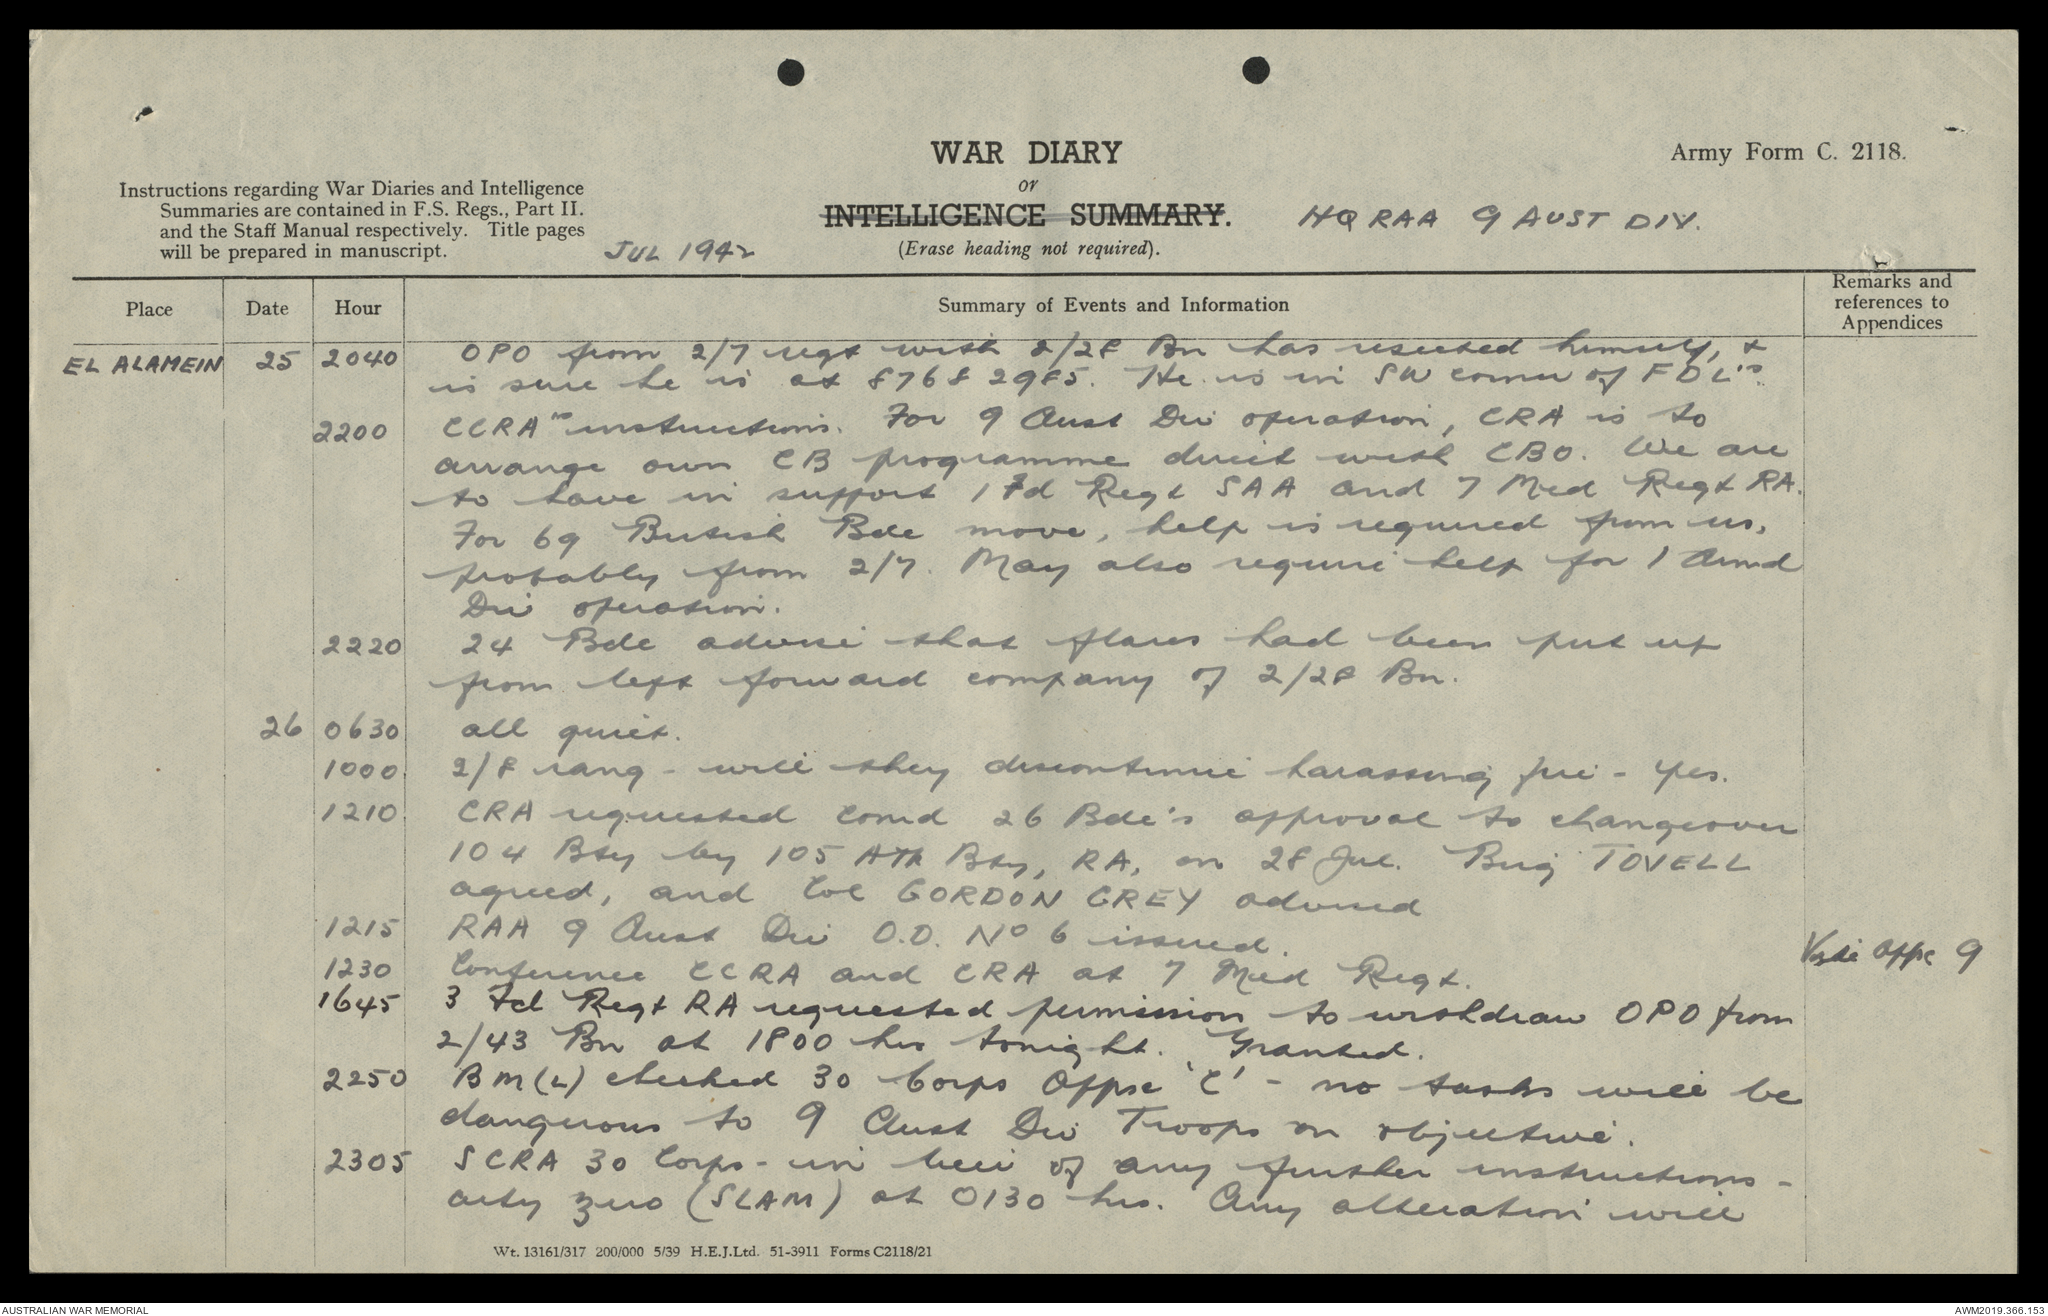 WAR DIARY
or
INTELLIGENCE SUMMARY.
(Erase heading not required).
Army Form C. 2118.
Instructions regarding War Diaries and Intelligence
Summaries are contained in F.S. Regs., Part II.
and the Staff Manual respectively. Title pages
will be prepared in manuscript.
JUL 1942
HQ RAA 9 AUST DIV.
Place Date Hour Summary of Events and Information Remarks and references to Appendices
EL ALAMEIN 25 2040 OPO from 2/7 regt with 2/28 Bn has resected himself, &
is sure he is at 8768 2985. He is in SW corner of FDL's.
2200 CCRA's instructions. For 9 Aust Div operation, CRA is to
arrange own CB programme direct with CBO. We are
to have in support 1 Fd Regt SAA and 7 Med Regt RA.
For 69 British Bde move, help is required from us,
probably from 2/7. May also require help for 1 Armd
Div operation.
2220 24 Bde advise that flares had been put up
from left forward company of 2/28 Bn.
26 0630 all quiet.
1000 2/8 rang - will they discontinue harassing fire - Yes.
1210 CRA requested Comd 26 Bde's approval to changeover
104 Bty by 105 ATk Bty, RA, on 28 Jul. Brig TOVELL
agreed, and Col GORDON GREY advised
1215 RAA 9 Aust Div O.O. No 6 issued. Vide Appx 9
1230 Conference CCRA and CRA at 7 Med Regt.
1645 3 Fd Regt RA requested permission to withdraw OPO from
2/43 Bn at 1800 hrs tonight. Granted.
2250 BM(L) checked 30 Corps Appx 'C' - no tasks will be
dangerous to 9 Aust Div Troops on objective.
2305 SCRA 30 Corps - in lieu of any further instructions -
arty zero (SLAM) at 0130 hrs. Any alteration will
Wt. 13161/317 200/000 5/39 H.E.J.Ltd. 51-3911 Forms C2118/21
AUSTRALIAN WAR MEMORIAL
AWM2019.366.153